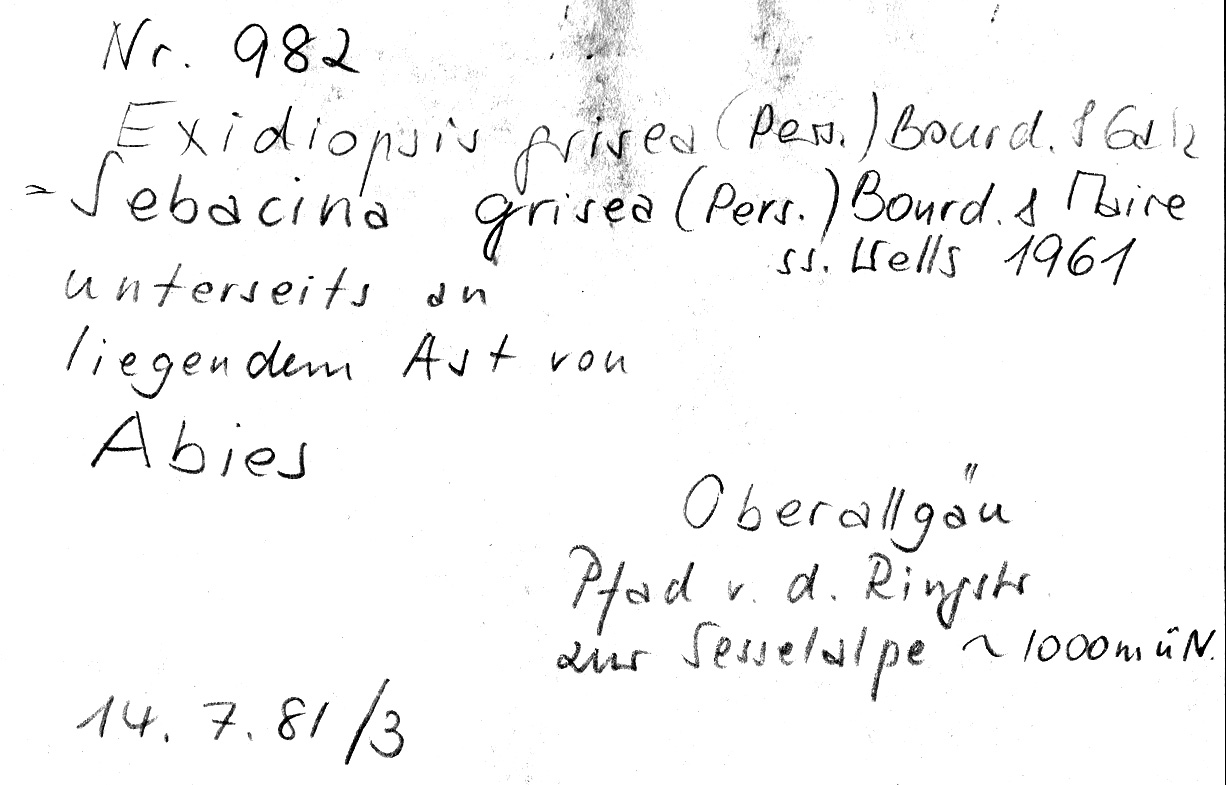 Nr. 982
Exidiopsis grisea (Pers.) Bourd. & Galz
= Sebacina grisea (Pers.) Bourd. & Maire
ss. Wells 1961
unterseits an
liegendem Ast von
Abies
Oberallgäu
Pfad v. d. Ringstr.
zur Sesselalpe ~ 1000m üN.
14. 7. 81 /3